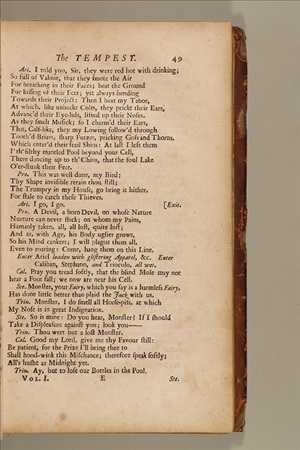 The TEMPEST. 49
Ari. I told you, Sir, they were red hot with drinking;
So full of Valour, that they smote the Air
For breathing in their Faces; beat the Ground
For kissing of their Feet; yet always bending
Towards their Project: Then I beat my Tabor,
At which, like unbackt Colts, they prickt their Ears,
Advanc'd their Eye-lids, lifted up their Noses,
As they smelt Musick; so I charm'd their Ears,
That, Calf-like, they my Lowing follow'd through
Tooth'd Briars, sharp Furzes, pricking Goss and Thorns,
Which enter'd their frail Shins: At last I left them
I' th' filthy mantled Pool beyond your Cell,
There dancing up to th' Chins, that the foul Lake
O'er-stunk their Feet.
Pro. This was well done, my Bird;
Thy Shape invisible retain thou still;
The Trumpery in my House, go bring it hither,
For stale to catch these Thieves.
Ari. I go, I go. [Exit.
Pro. A Devil, a born Devil, on whose Nature
Nurture can never stick; on whom my Pains,
Humanly taken, all, all lost, quite lost;
And as, with Age, his Body uglier grows,
So his Mind cankers; I will plague them all,
Even to roaring: Come, hang them on this Line.
Enter Ariel loaden with glistering Apparel, &c. Enter
Caliban, Stephano, and Trinculo, all wet.
Cal. Pray you tread softly, that the blind Mole may not
hear a Foot fall; we now are near his Cell.
Ste. Monster, your Fairy, which you say is a harmless Fairy,
Has done little better than plaid the Jack with us.
Trin. Monster, I do smell all Horse-piss, at which
My Nose is in great Indignation.
Ste. So is mine: Do you hear, Monster? If I should
Take a Displeasure against you; look you——
Trin. Thou wert but a lost Monster.
Cal. Good my Lord, give me thy Favour still:
Be patient, for the Prize I'll bring thee to
Shall hood-wink this Mischance; therefore speak softly;
All's husht as Midnight yet.
Trin. Ay, but to lose our Bottles in the Pool.
VOL. I. E Ste.